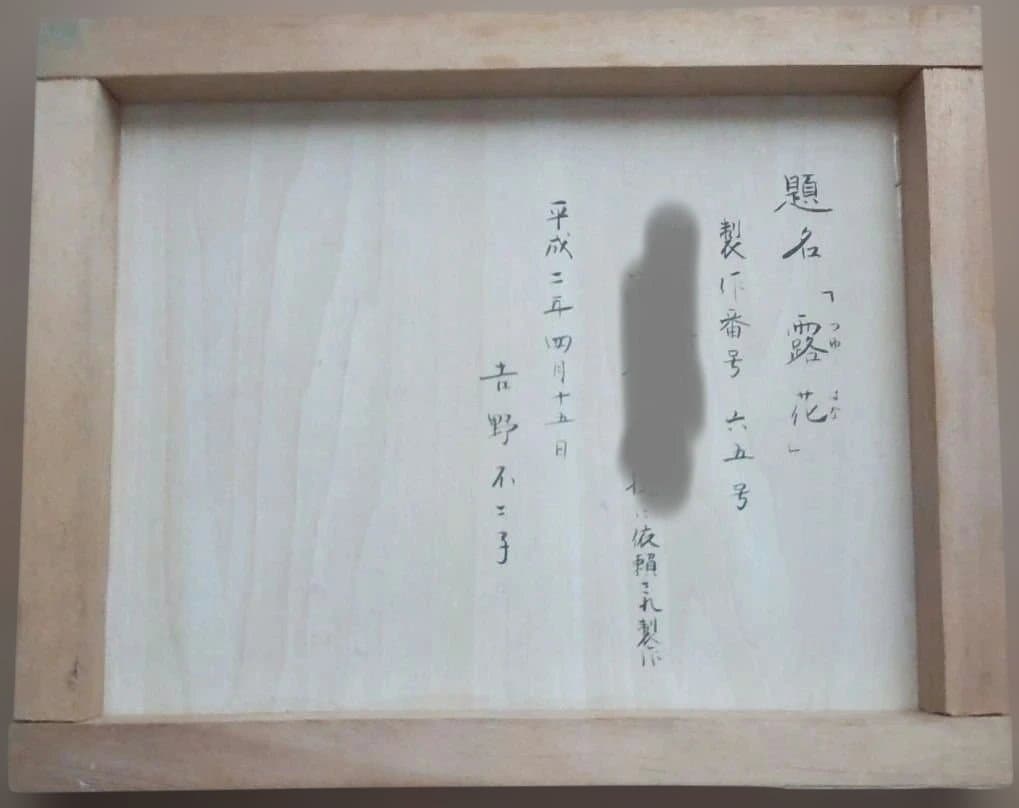 題名「露花」
つゆ はな
製作番号 六五号
様に依頼され製作
平成二年四月十五日
吉野不二子